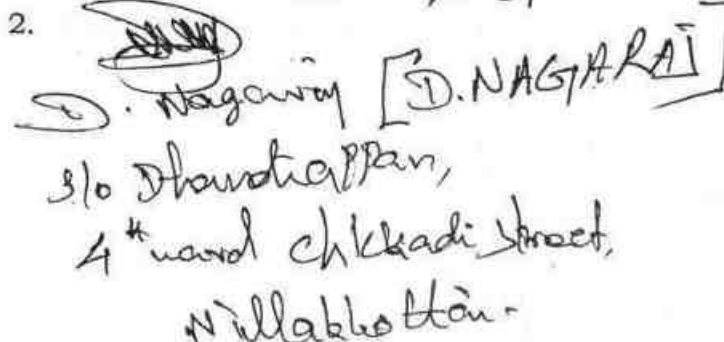 2.
D. Nagaraj [D.NAGARAJ]
S/o Dhandiappan,
4th ward Chkkadi Street,
Nillakkottai.